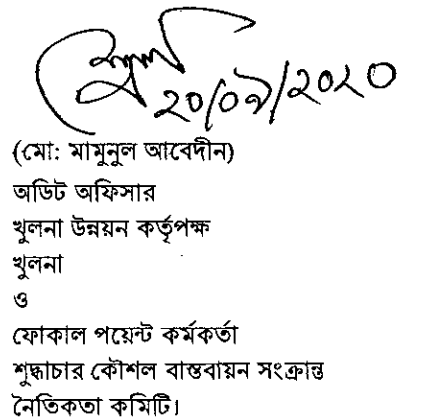 ২০/০৯/২০২০
(মো: মামুনুল আবেদীন)
অডিট অফিসার
খুলনা উন্নয়ন কর্তৃপক্ষ
খুলনা
ও
ফোকাল পয়েন্ট কর্মকর্তা
শুদ্ধাচার কৌশল বাস্তবায়ন সংক্রান্ত
নৈতিকতা কমিটি।